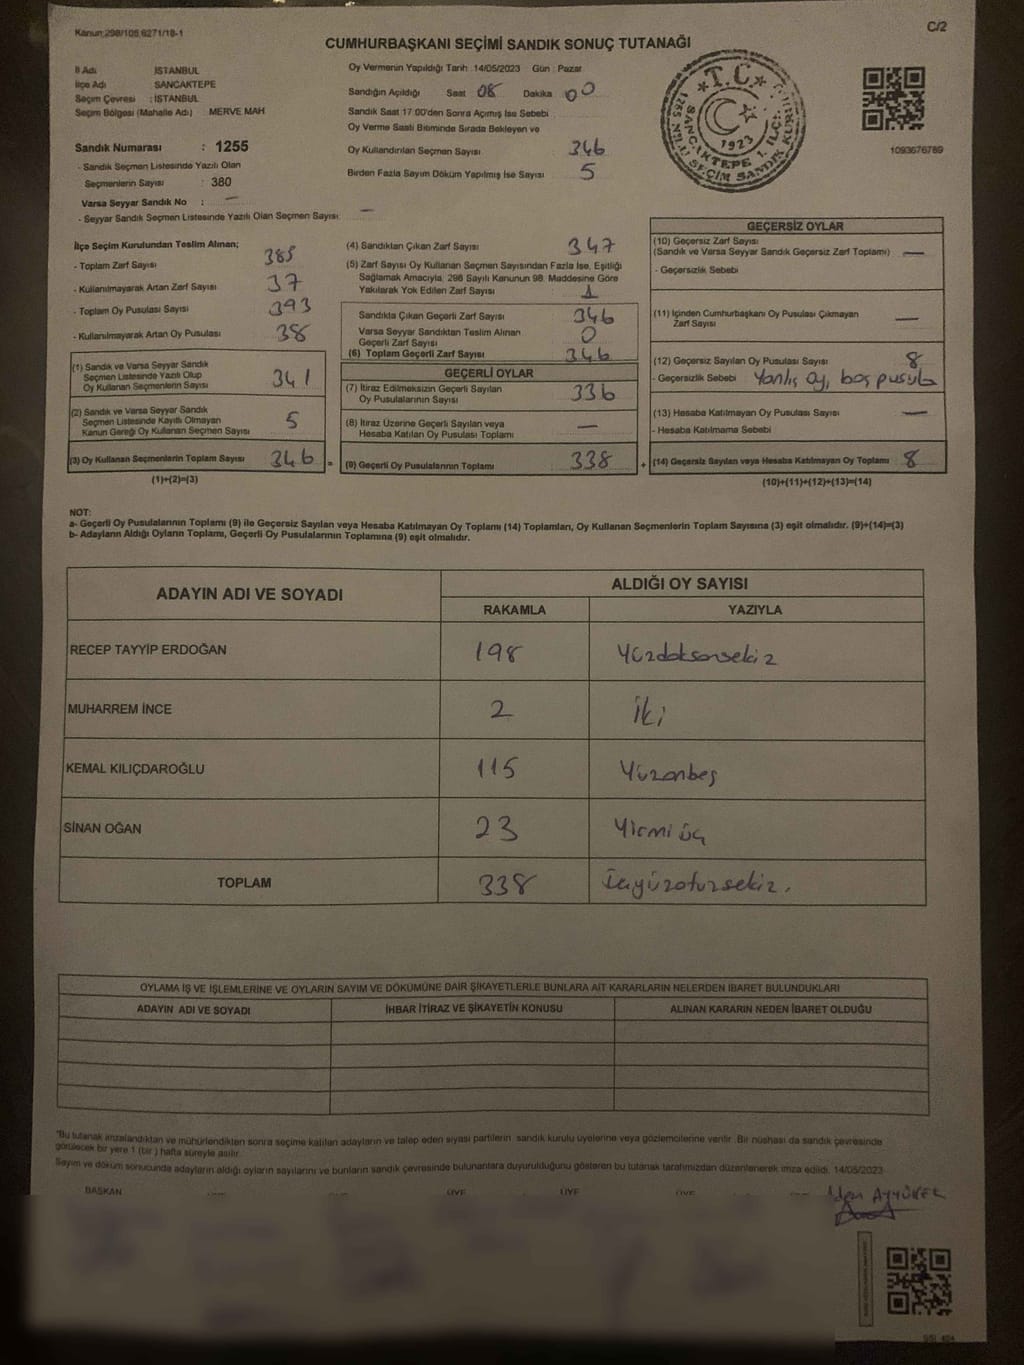 Kanun:298/105,6271/18-1
C/2
CUMHURBAŞKANI SEÇİMİ SANDIK SONUÇ TUTANAĞI
İl Adı İSTANBUL
İlçe Adı SANCAKTEPE
Seçim Çevresi : İSTANBUL
Seçim Bölgesi (Mahalle Adı) : MERVE MAH
Sandık Numarası : 1255
- Sandık Seçmen Listesinde Yazılı Olan
Seçmenlerin Sayısı : 380
Varsa Seyyar Sandık No : —
- Seyyar Sandık Seçmen Listesinde Yazılı Olan Seçmen Sayısı: —
Oy Vermenin Yapıldığı Tarih :14/05/2023 Gün : Pazar
Sandığın Açıldığı Saat 08 Dakika 00
Sandık Saat 17:00'den Sonra Açımış İse Sebebi
Oy Verme Saati Bitiminde Sırada Bekleyen ve
Oy Kullandırılan Seçmen Sayısı 346
Birden Fazla Sayım Döküm Yapılmış İse Sayısı 5
T.C.
1923
1255 NOLU SEÇİM SANDIK KURULU
SANCAKTEPE 1. İLÇE
1093676789
İlçe Seçim Kurulundan Teslim Alınan;
- Toplam Zarf Sayısı 385
- Kullanılmayarak Artan Zarf Sayısı 37
- Toplam Oy Pusulası Sayısı 393
- Kullanılmayarak Artan Oy Pusulası 38
(1) Sandık ve Varsa Seyyar Sandık
Seçmen Listesinde Yazılı Olup
Oy Kullanan Seçmenlerin Sayısı 341
(2) Sandık ve Varsa Seyyar Sandık
Seçmen Listesinde Kayıtlı Olmayan
Kanun Gereği Oy Kullanan Seçmen Sayısı 5
(3) Oy Kullanan Seçmenlerin Toplam Sayısı 346 =
(1)+(2)=(3)
(4) Sandıktan Çıkan Zarf Sayısı 347
(5) Zarf Sayısı Oy Kullanan Seçmen Sayısından Fazla İse, Eşitliği
Sağlamak Amacıyla, 298 Sayılı Kanunun 98. Maddesine Göre
Yakılarak Yok Edilen Zarf Sayısı 1
Sandıkta Çıkan Geçerli Zarf Sayısı 346
Varsa Seyyar Sandıktan Teslim Alınan
Geçerli Zarf Sayısı 0
(6) Toplam Geçerli Zarf Sayısı 346
GEÇERLİ OYLAR
(7) İtiraz Edilmeksizin Geçerli Sayılan
Oy Pusulalarının Sayısı 336
(8) İtiraz Üzerine Geçerli Sayılan veya
Hesaba Katılan Oy Pusulası Toplamı —
(9) Geçerli Oy Pusulalarının Toplamı 338 +
GEÇERSİZ OYLAR
(10) Geçersiz Zarf Sayısı
(Sandık ve Varsa Seyyar Sandık Geçersiz Zarf Toplamı) —
- Geçersizlik Sebebi
(11) İçinden Cumhurbaşkanı Oy Pusulası Çıkmayan
Zarf Sayısı —
(12) Geçersiz Sayılan Oy Pusulası Sayısı 8
- Geçersizlik Sebebi Yanlış oy, boş pusula
(13) Hesaba Katılmayan Oy Pusulası Sayısı —
- Hesaba Katılmama Sebebi
(14) Geçersiz Sayılan veya Hesaba Katılmayan Oy Toplamı 8
(10)+(11)+(12)+(13)=(14)
NOT:
a- Geçerli Oy Pusulalarının Toplamı (9) ile Geçersiz Sayılan veya Hesaba Katılmayan Oy Toplamı (14) Toplamları, Oy Kullanan Seçmenlerin Toplam Sayısına (3) eşit olmalıdır. (9)+(14)=(3)
b- Adayların Aldığı Oyların Toplamı, Geçerli Oy Pusulalarının Toplamına (9) eşit olmalıdır.
ADAYIN ADI VE SOYADI
ALDIĞI OY SAYISI
RAKAMLA YAZIYLA
RECEP TAYYİP ERDOĞAN 198 Yüzdoksansekiz
MUHARREM İNCE 2 İki
KEMAL KILIÇDAROĞLU 115 Yüzonbeş
SİNAN OĞAN 23 Yirmi üç
TOPLAM 338 Üçyüzotuzsekiz.
OYLAMA İŞ VE İŞLEMLERİNE VE OYLARIN SAYIM VE DÖKÜMÜNE DAİR ŞİKAYETLERLE BUNLARA AİT KARARLARIN NELERDEN İBARET BULUNDUKLARI
ADAYIN ADI VE SOYADI İHBAR İTİRAZ VE ŞİKAYETİN KONUSU ALINAN KARARIN NEDEN İBARET OLDUĞU
*Bu tutanak imzalandıktan ve mühürlendikten sonra seçime katılan adayların ve talep eden siyasi partilerin sandık kurulu üyelerine veya gözlemcilerine verilir. Bir nüshası da sandık çevresinde
görülecek bir yere 1 (bir) hafta süreyle asılır.
Sayım ve döküm sonucunda adayların aldığı oyların sayılarını ve bunların sandık çevresinde bulunanlara duyurulduğunu gösteren bu tutanak tarafımızdan düzenlenerek imza edildi. 14/05/2023
BAŞKAN ÜYE ÜYE ÜYE ÜYE ÜYE